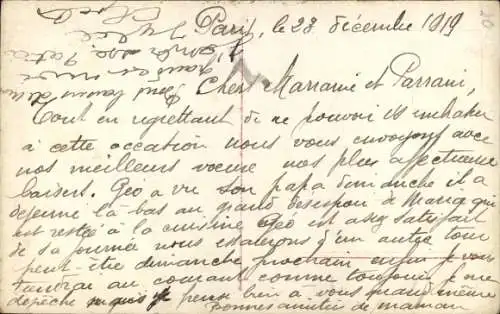 Paris, le 28 décembre 1919
Chers Marraine et Parrain,
Tout en regrettant de ne pouvoir
à cette occation nous vous envoyons avec
nos meilleurs voeux nos plus affectueux
baisers. Géo a vu son papa dimanche il a
dejeuné là bas au grand desespoir de Maria qui
est restée à la cuisine Géo est assez satisfait
de sa journée nous essaierons d'un autre tour
peut-être dimanche prochain enfin je vous
tiendrai au courant comme toujours je me
dépèche mais je pense bien à vous quand même
Bonnes amitiés de maman